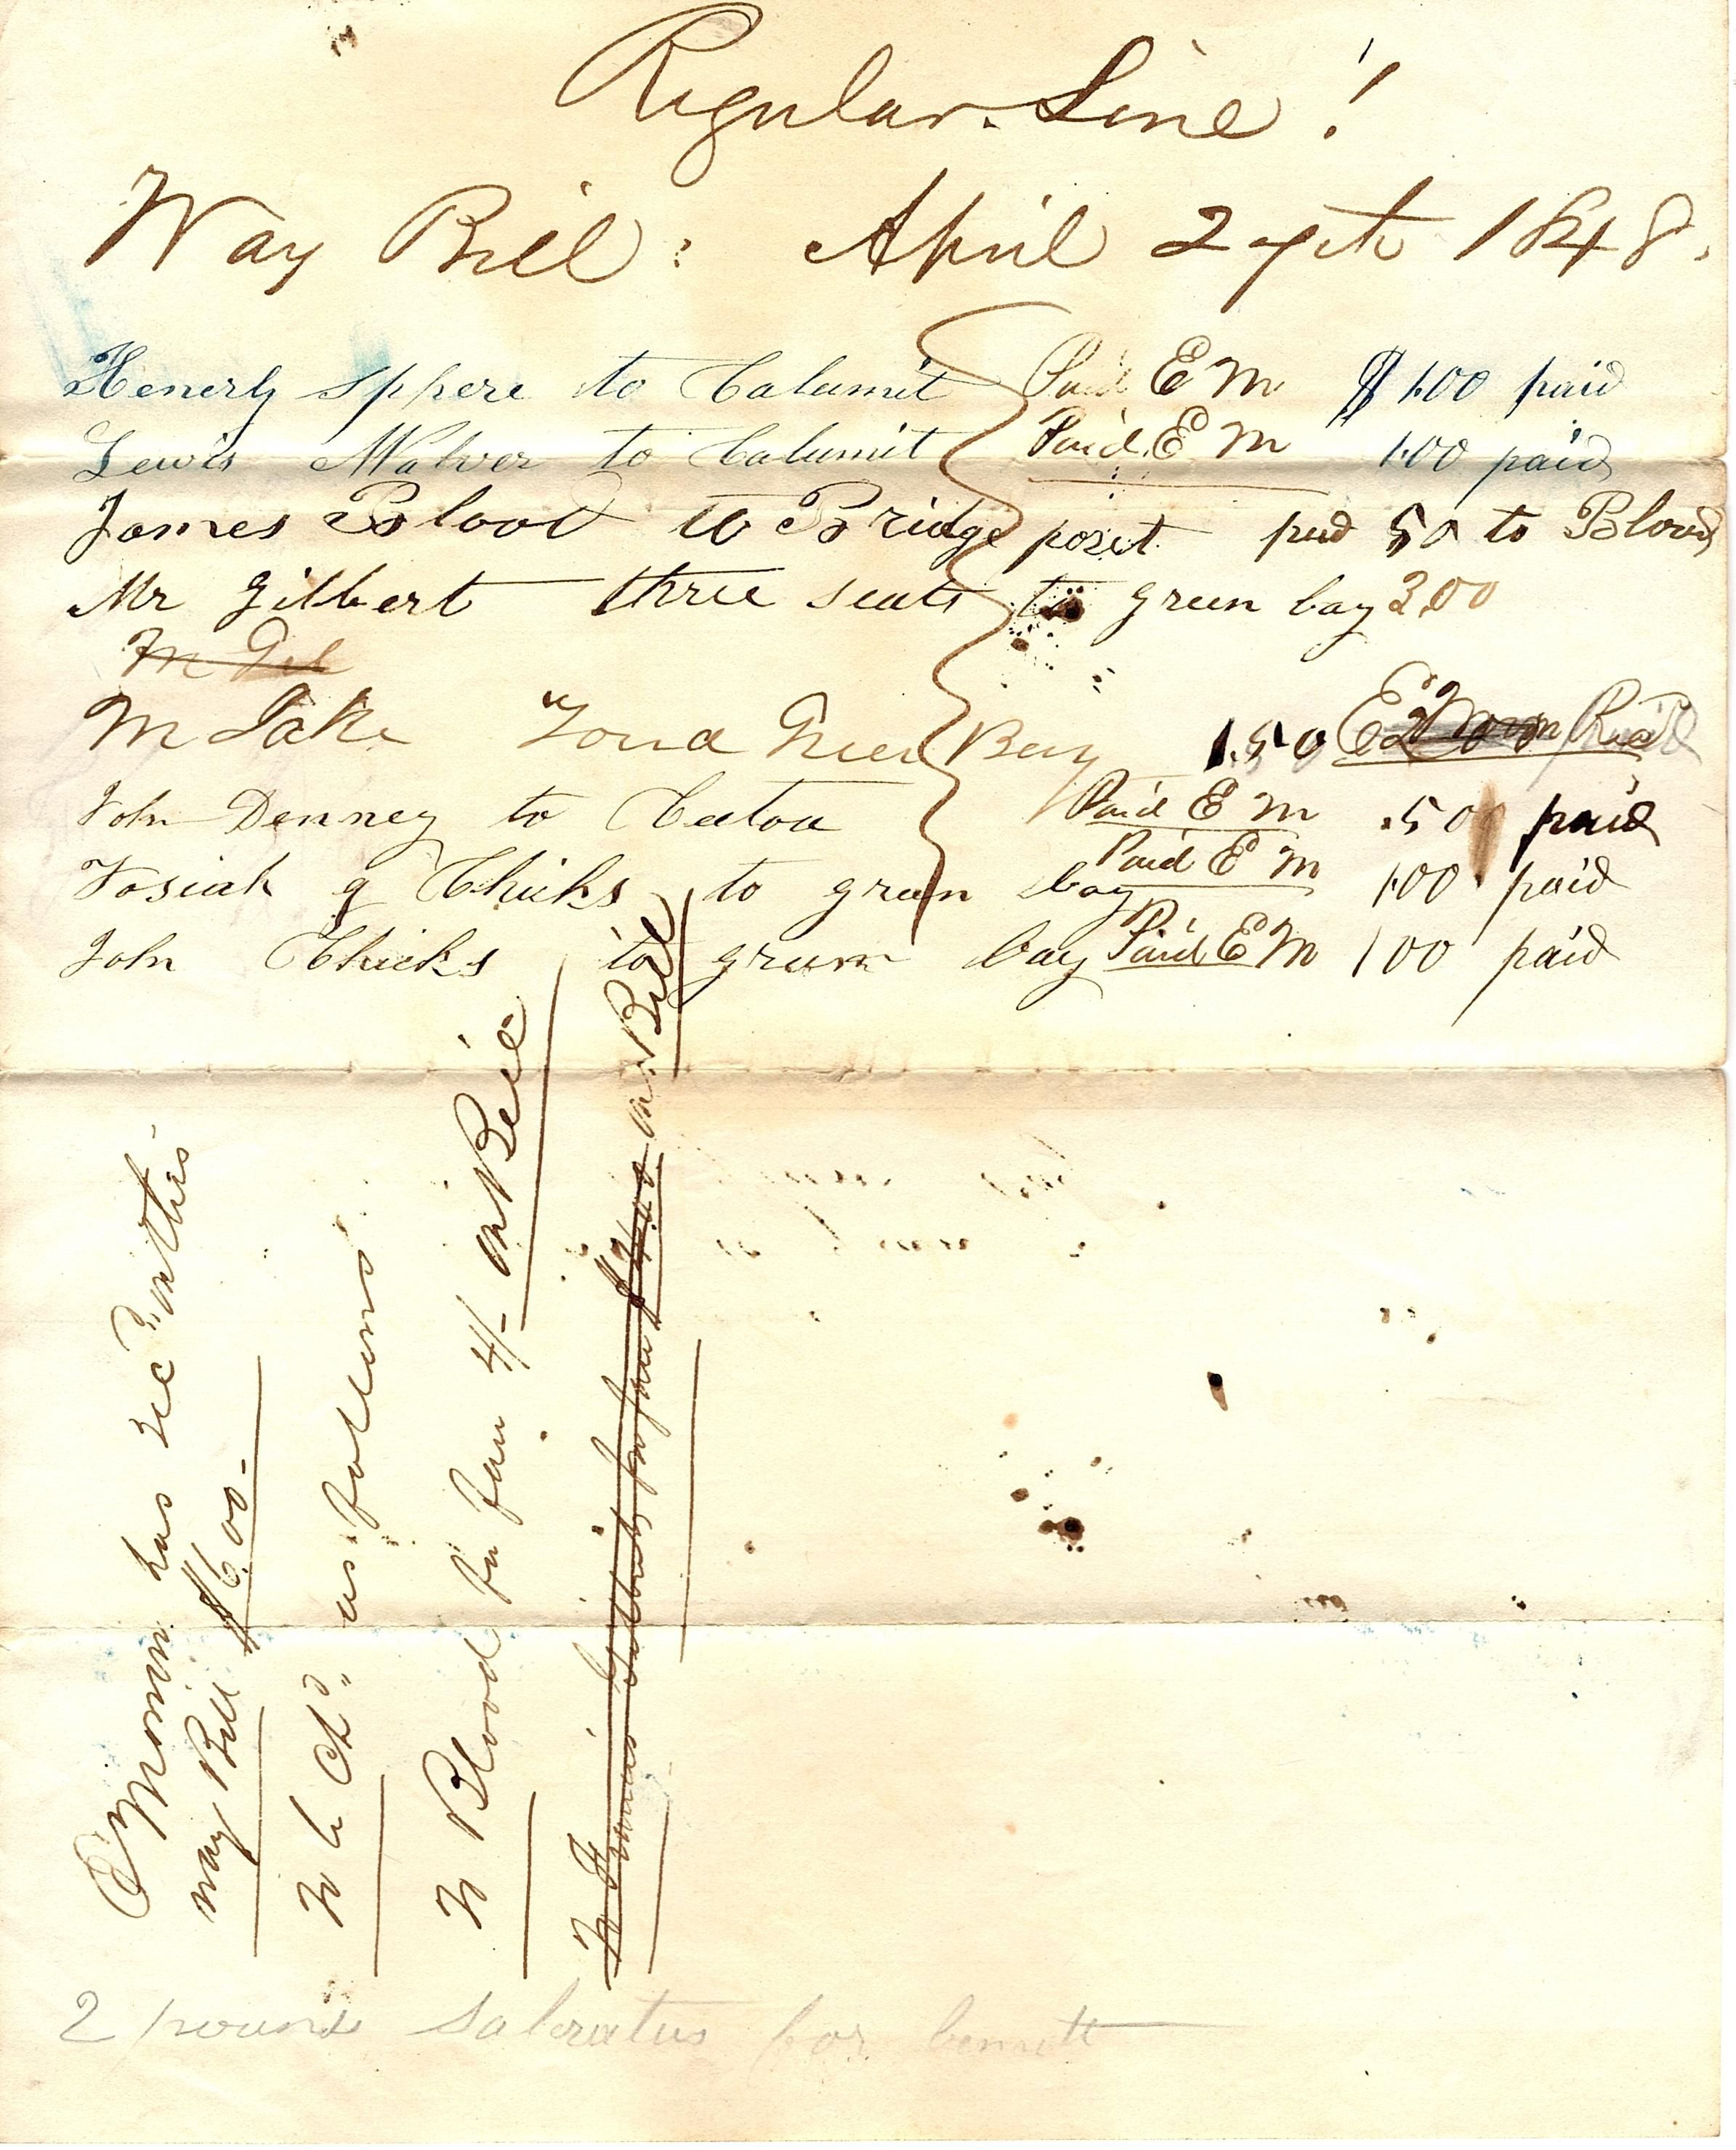 Regular Line!
Way Bill: April 27th 1848.
Henerly Sphere to Calumit Paid E M $1.00 paid
Lewis Malver to Calumit Paid E M 1.00 paid
James Blood to Bridge poset pud 50 to Blood
Mr Gilbert three seats to green bay 3.00
M Gil
M Lake Fond Green Bay 1.50
John Denney to Caton Paid E M .50 paid
Josiah q Chicks to green bay Paid E M 1.00 paid
John Chicks to green bay Paid E M 1 00 paid
E Morin has recd on this
way Bill $6.00-
as follows
Blood for fare 4/- on Bill
for fare on Bill
2 pounds Saleratus for benett